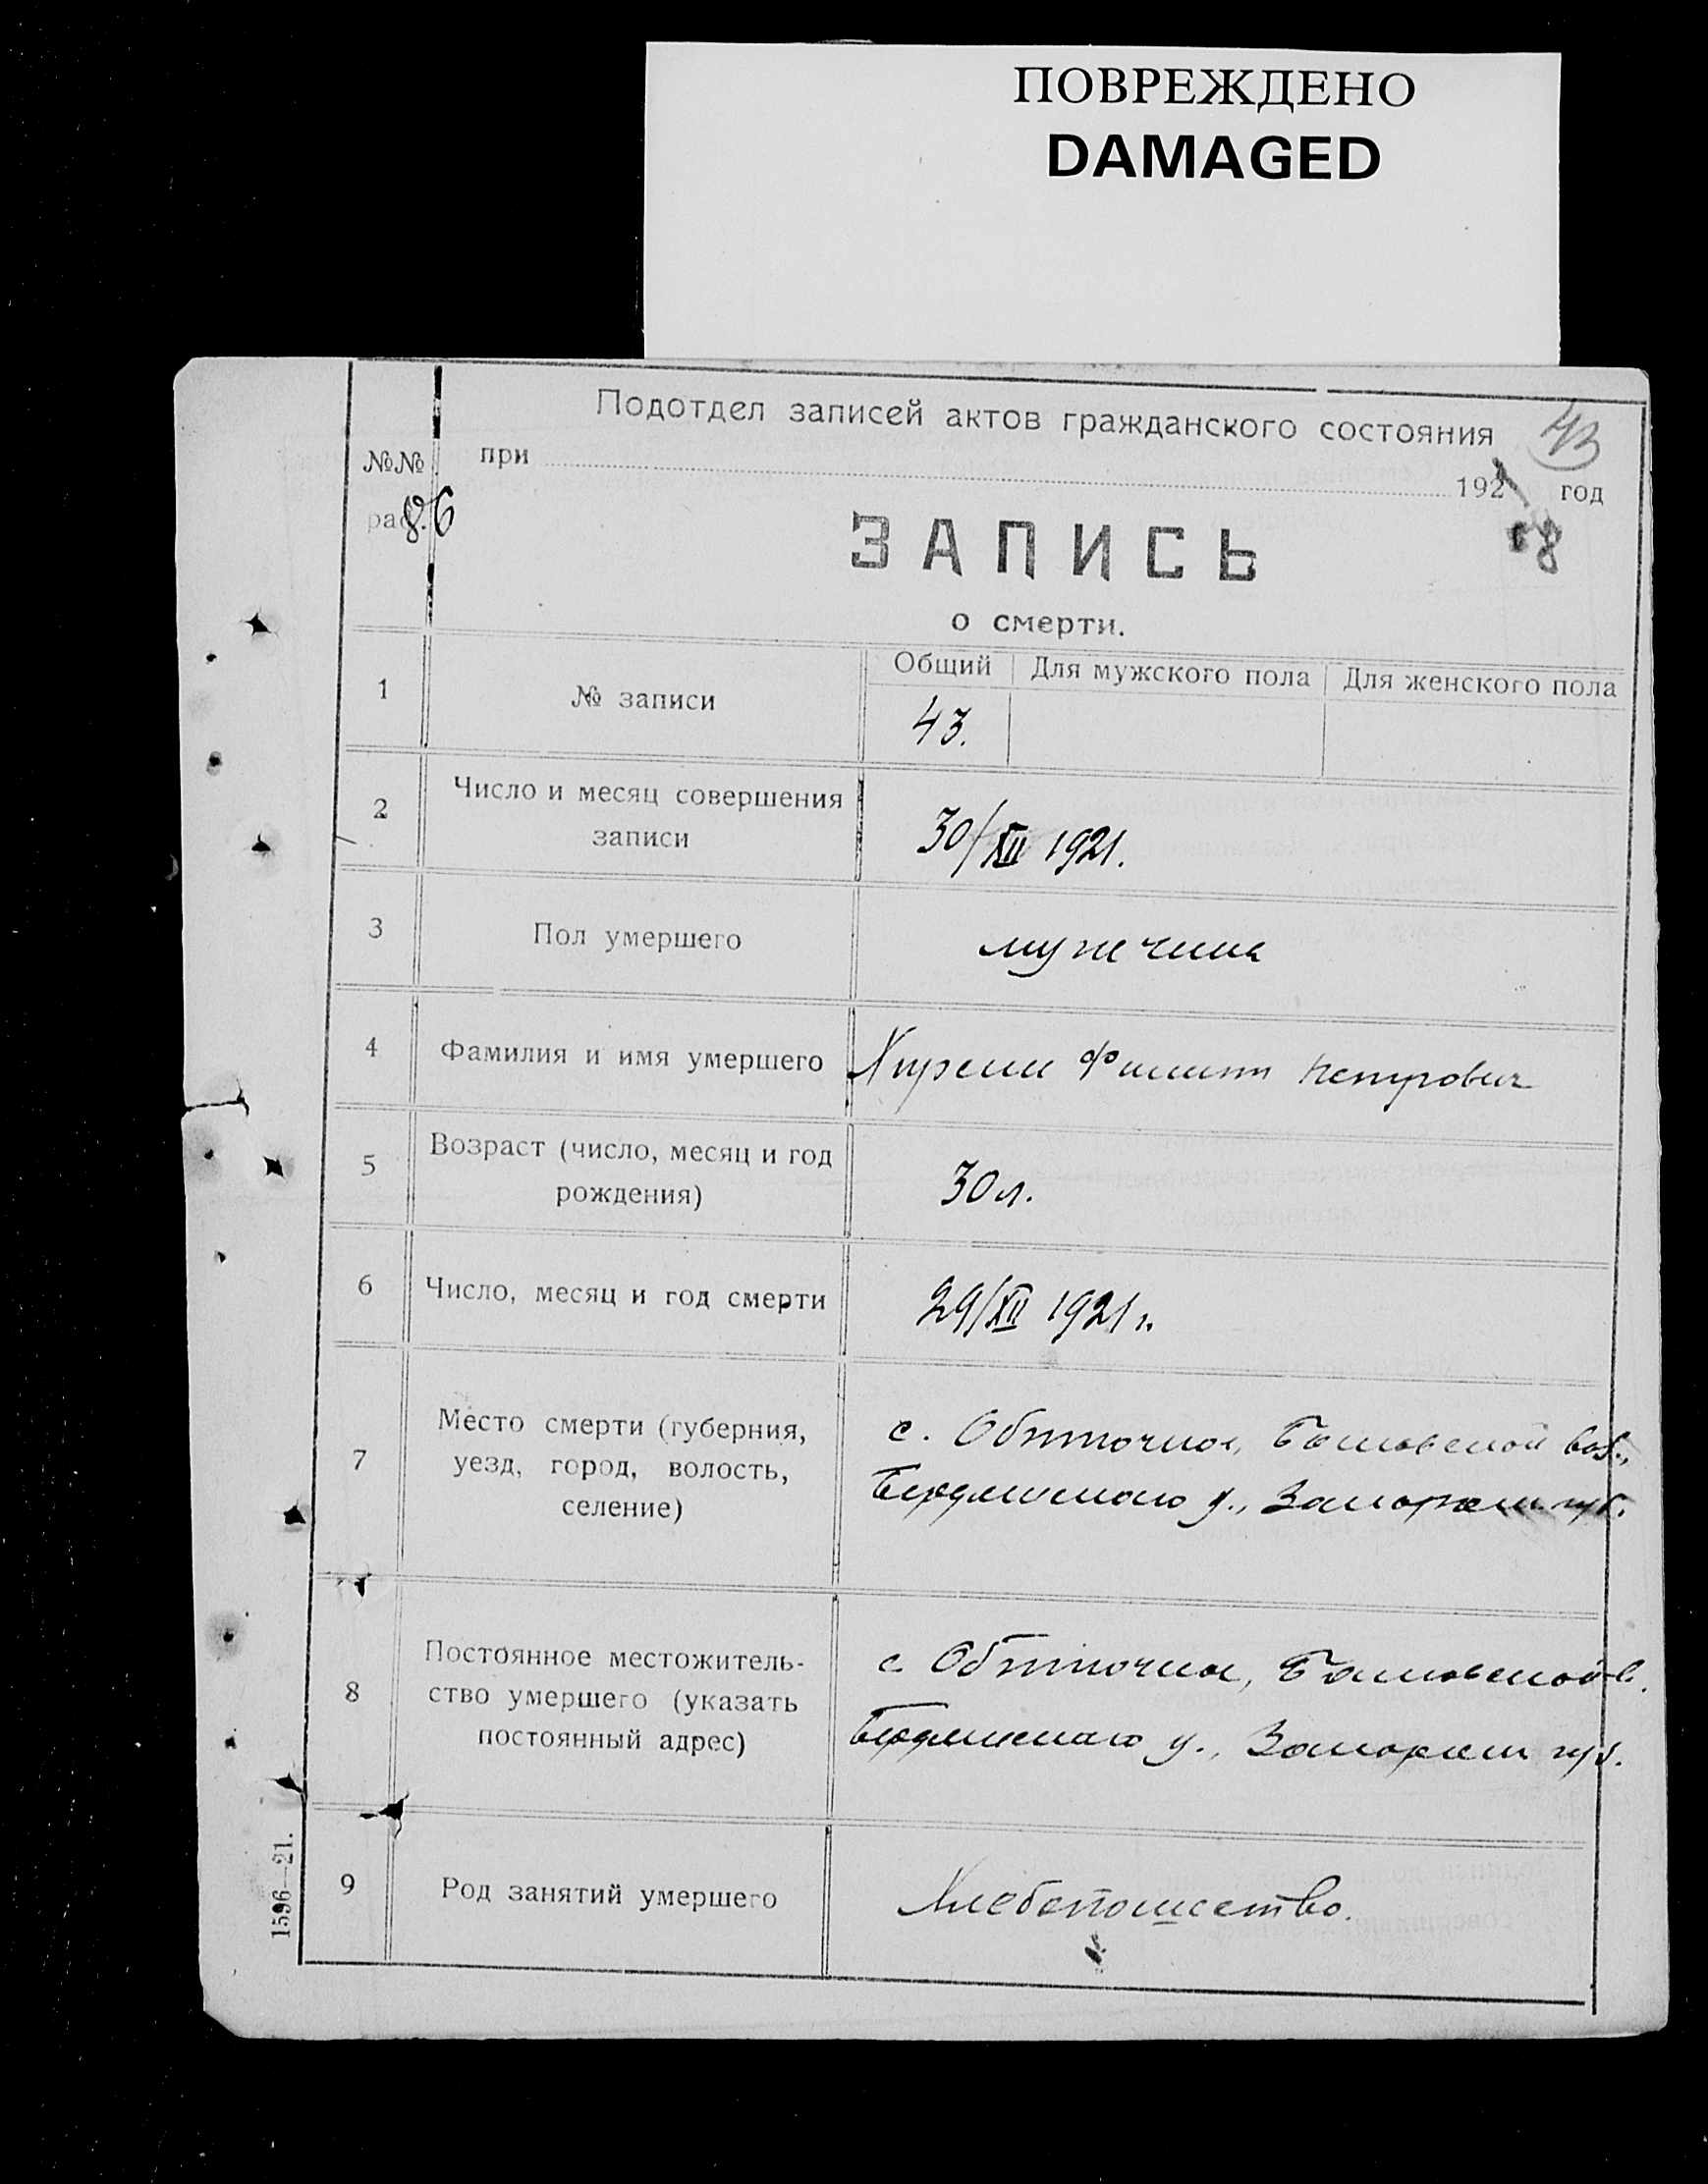 ПОВРЕЖДЕНО
DAMAGED
Подотдел записей актов гражданского состояния
43
№№ при 1921 год
86
ЗАПИСЬ
о смерти.
Общий Для мужского пола Для женского пола
1 № записи 43.
2 Число и месяц совершения
записи 30/XII 1921.
3 Пол умершего мужчина
4 Фамилия и имя умершего Филипп Петрович
5 Возраст (число, месяц и год
рождения) 30 л.
6 Число, месяц и год смерти 29/XII 1921 г.
7 Место смерти (губерния,
уезд, город, волость,
селение)
с. Обиточное, вол.,
Бердянского у., Запорож. губ.
8 Постоянное местожитель-
ство умершего (указать
постоянный адрес)
с. Обиточное, в.
Бердянского у., Запорож. губ.
9 Род занятий умершего Хлебопашество.
1596—21.